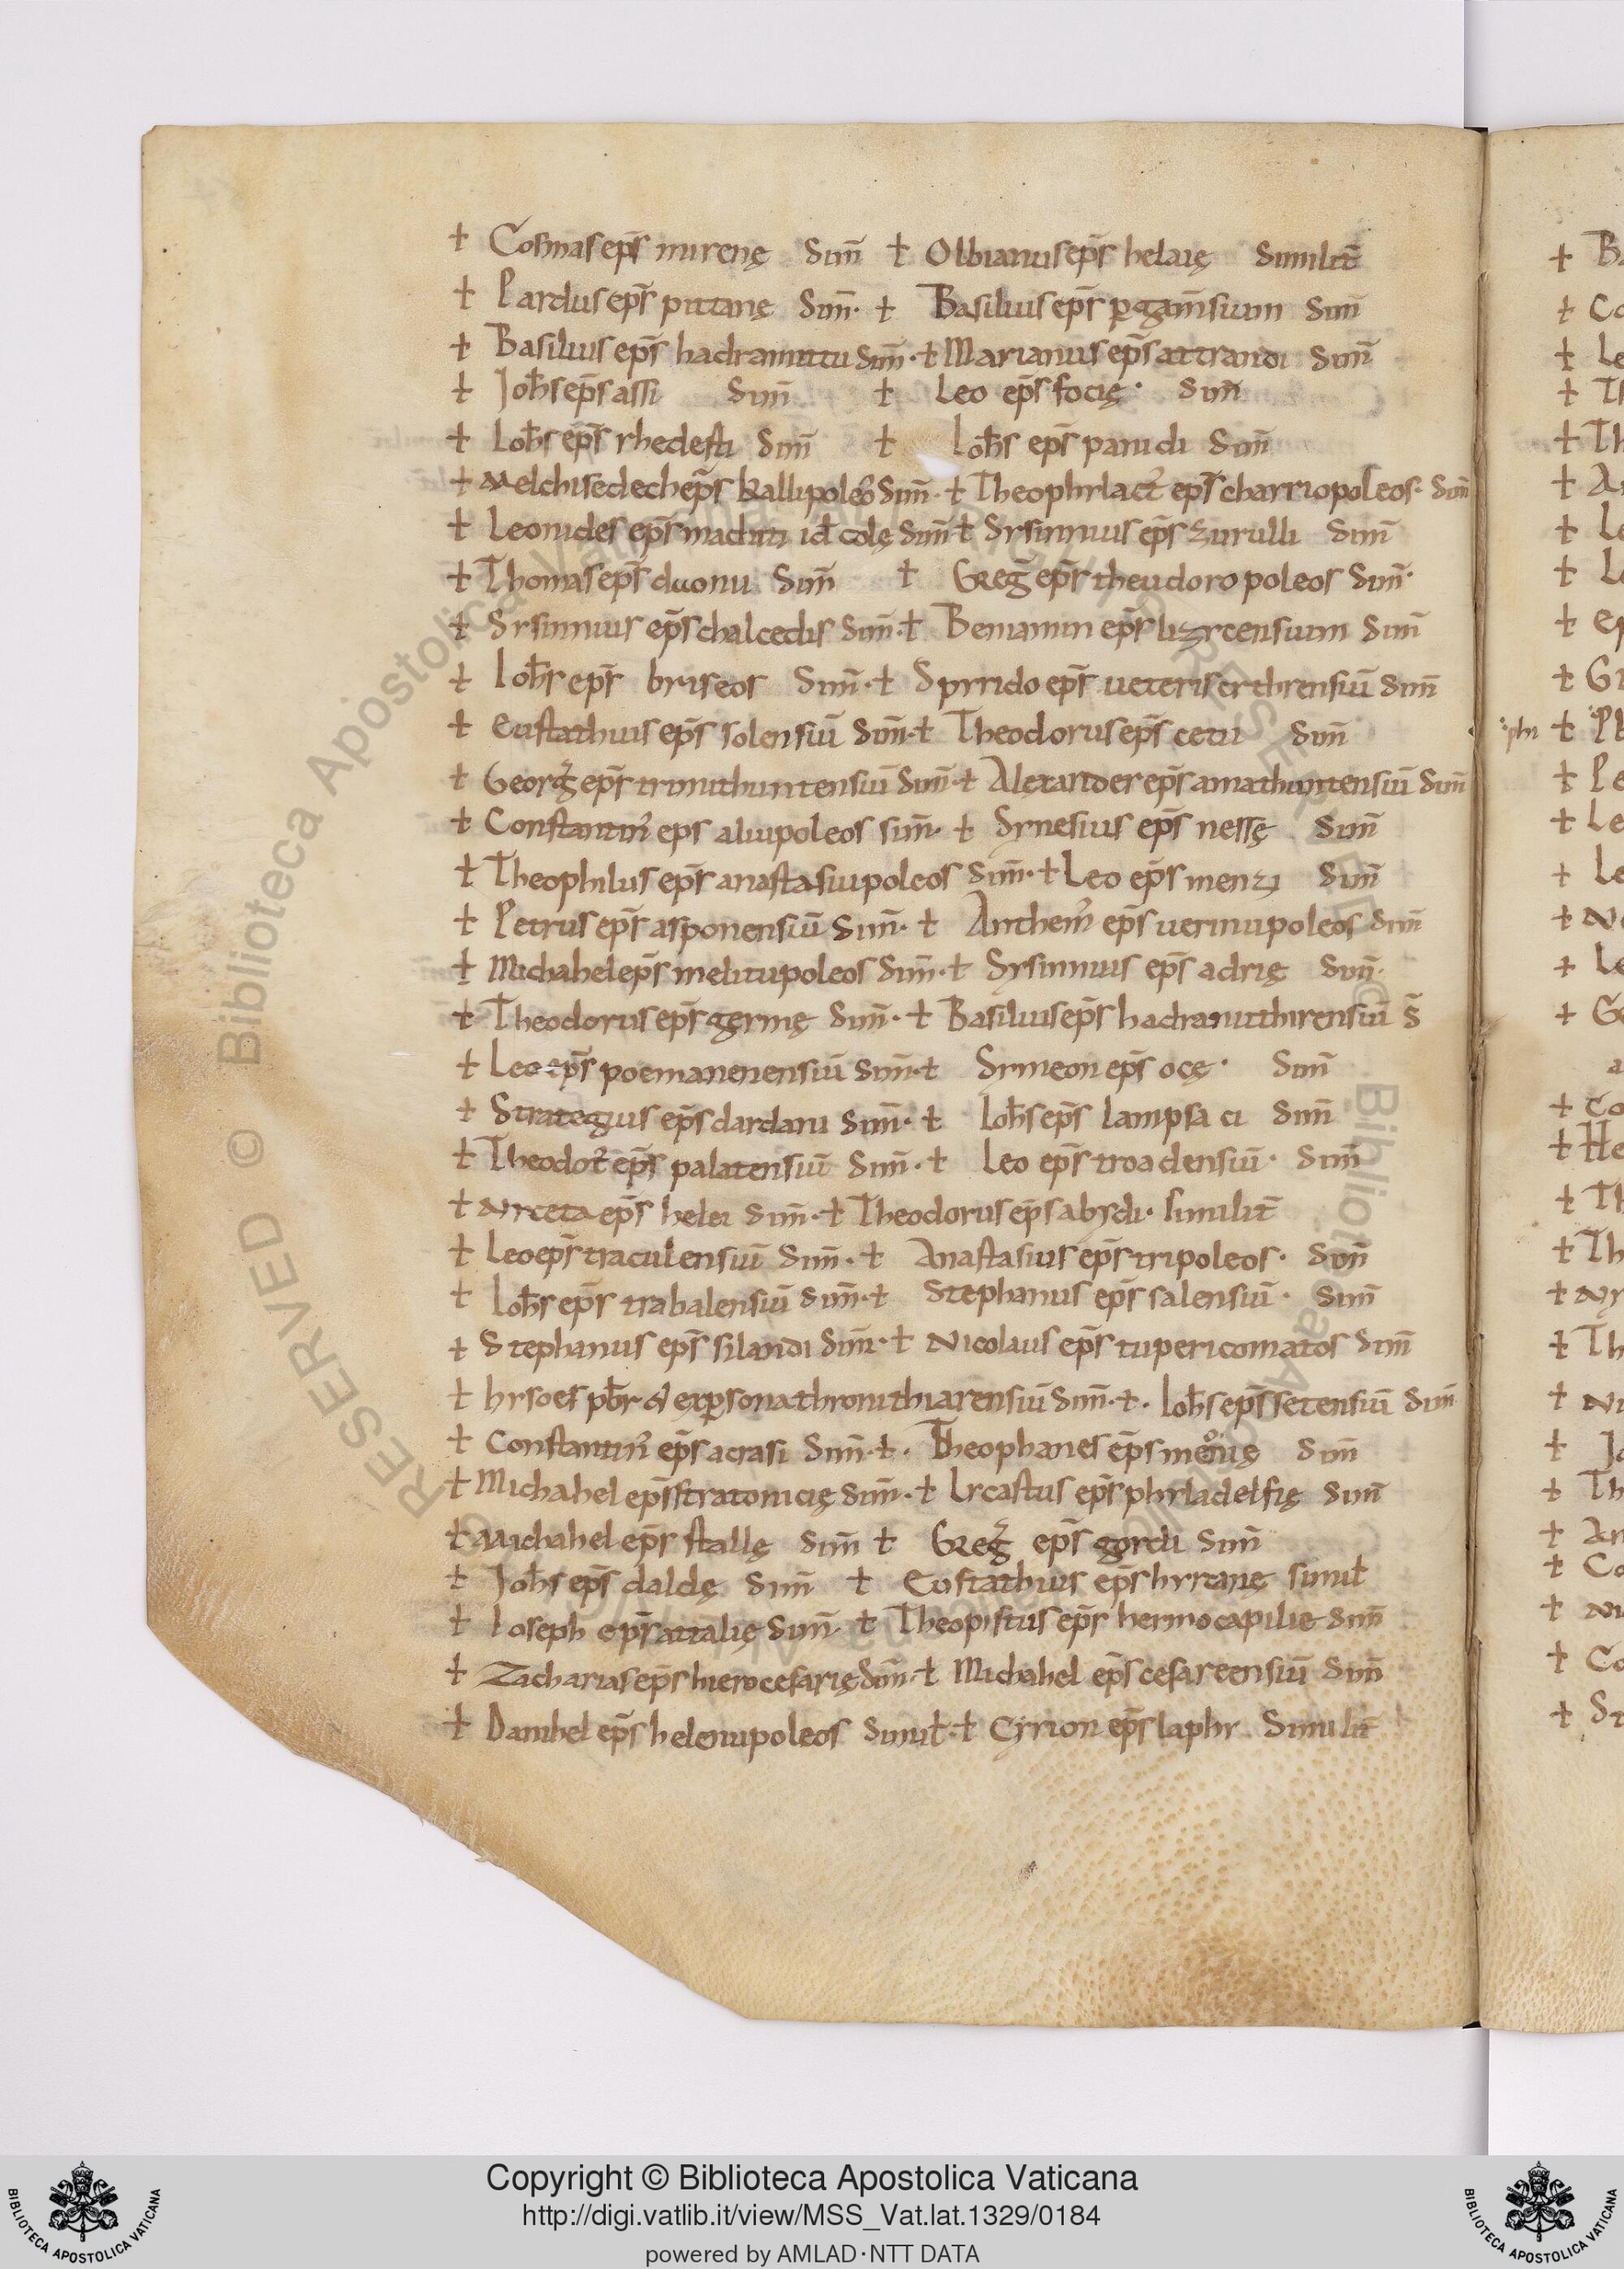 † Cosmas ep̄s mirenę Sim̄ † Olbianus ep̄s helaię Similit̄
† Pardus ep̄s pittanę Sim̄· † Basilius ep̄s ꝑgam̄sium Sim̄
† Basilius ep̄s hadramitu Sim̄· † Marianus ep̄s attrandi Sim̄
† Joh̄s ep̄s assi Sim̄ † Leo ep̄s focię· Sim̄
† Ioh̄s ep̄s rhedesti Sim̄ † Ioh̄s ep̄s panidi Sim̄
† Melchisedech ep̄s kallipoleos Sim̄· † Theophilact᾿ ep̄s charriopoleos· Sim̄
† Leonides ep̄s maditi id̄ colę Sim̄ † Sysinnius ep̄s zurulli Sim̄
† Thomas ep̄s daonii Sim̄ † Greg̃ ep̄s theudoropoleos Sim̄·
† Sysinnius ep̄s chalcedis Sim̄· † Beniamin ep̄s lizycensium Sim̄
† Ioh̄s ep̄s briseos Sim̄· † Spyrido ep̄s ueteris cythrensiū Sim̄
† Eustathius ep̄s solensiū Sim̄· † Theodorus ep̄s cetii Sim̄
† Georg᾿ ep̄s trimithuntensiū Sim̄· † Alexander ep̄s amathuntensiū Sim̄
† Constantin᾿ eps aluipoleos sim̄· † Synesius ep̄s nessę Sim̄
† Theophilus ep̄s anastasiupoleos Sim̄· † Leo ep̄s menzi Sim̄
† Petrus ep̄s asponensiū Sim̄· † Anthem᾿ ep̄s uerinupoleos Sim̄
† Michahel ep̄s melitupoleos Sim̄· † Sysinnius ep̄s adrię Sim̄·
† Theodorus ep̄s germę Sim̄· † Basilius ep̄s hadranutthirensiū S̄
† Leo ep̄s poemanenensiū Sim̄· † Symeon ep̄s ocę· Sim̄
† Strategius ep̄s dardani Sim̄· † Ioh̄s ep̄s lampsaci Sim̄
† Theodor᾿ ep̄s palatensiū Sim̄· † Leo ep̄s troadensiū· Sim̄
† Nyceta ep̄s helei Sim̄· † Theodorus ep̄s abydi· similit̄
† Leo ep̄s traculensiū Sim̄· † Anastasius ep̄s tripoleos· Sim̄
† Ioh̄s ep̄s trabalensiū Sim̄· † Stephanus ep̄s salensiū· Sim̄
† Stephanus ep̄s silandi Sim̄· † Nicolaus ep̄s tupericomatos Sim̄
† hysoes pb̄r & ex ꝑsona throni thiarensiū Sim̄· †· Ioh̄s ep̄s setensiū Sim̄
† Constantin᾿ ep̄s acrasi Sim̄· †· Theophanes ep̄s meonię Sim̄
† Michahel ep̄s stratonicię Sim̄· † Lycastus ep̄s phyladelfię Sim̄
† Michahel ep̄s stallę Sim̄ † Greg᾿ ep̄s gordi Sim̄
† Joh̄s ep̄s daldę Sim̄ † Eustathius ep̄s hyrtanę simil̄
† Ioseph ep̄s attalię Sim̄· † Theopistus ep̄s hermocapilię Sim̄
† Zacharias ep̄s hierocesarię Sim̄· † Michahel ep̄s cesareensiū Sim̄
† Danihel ep̄s helenupoleos Simil̄· † Cyrion ep̄s laphy Similit̄
Copyright © Biblioteca Apostolica Vaticana
http://digi.vatlib.it/view/MSS_Vat.lat.1329/0184
powered by AMLAD·NTT DATA